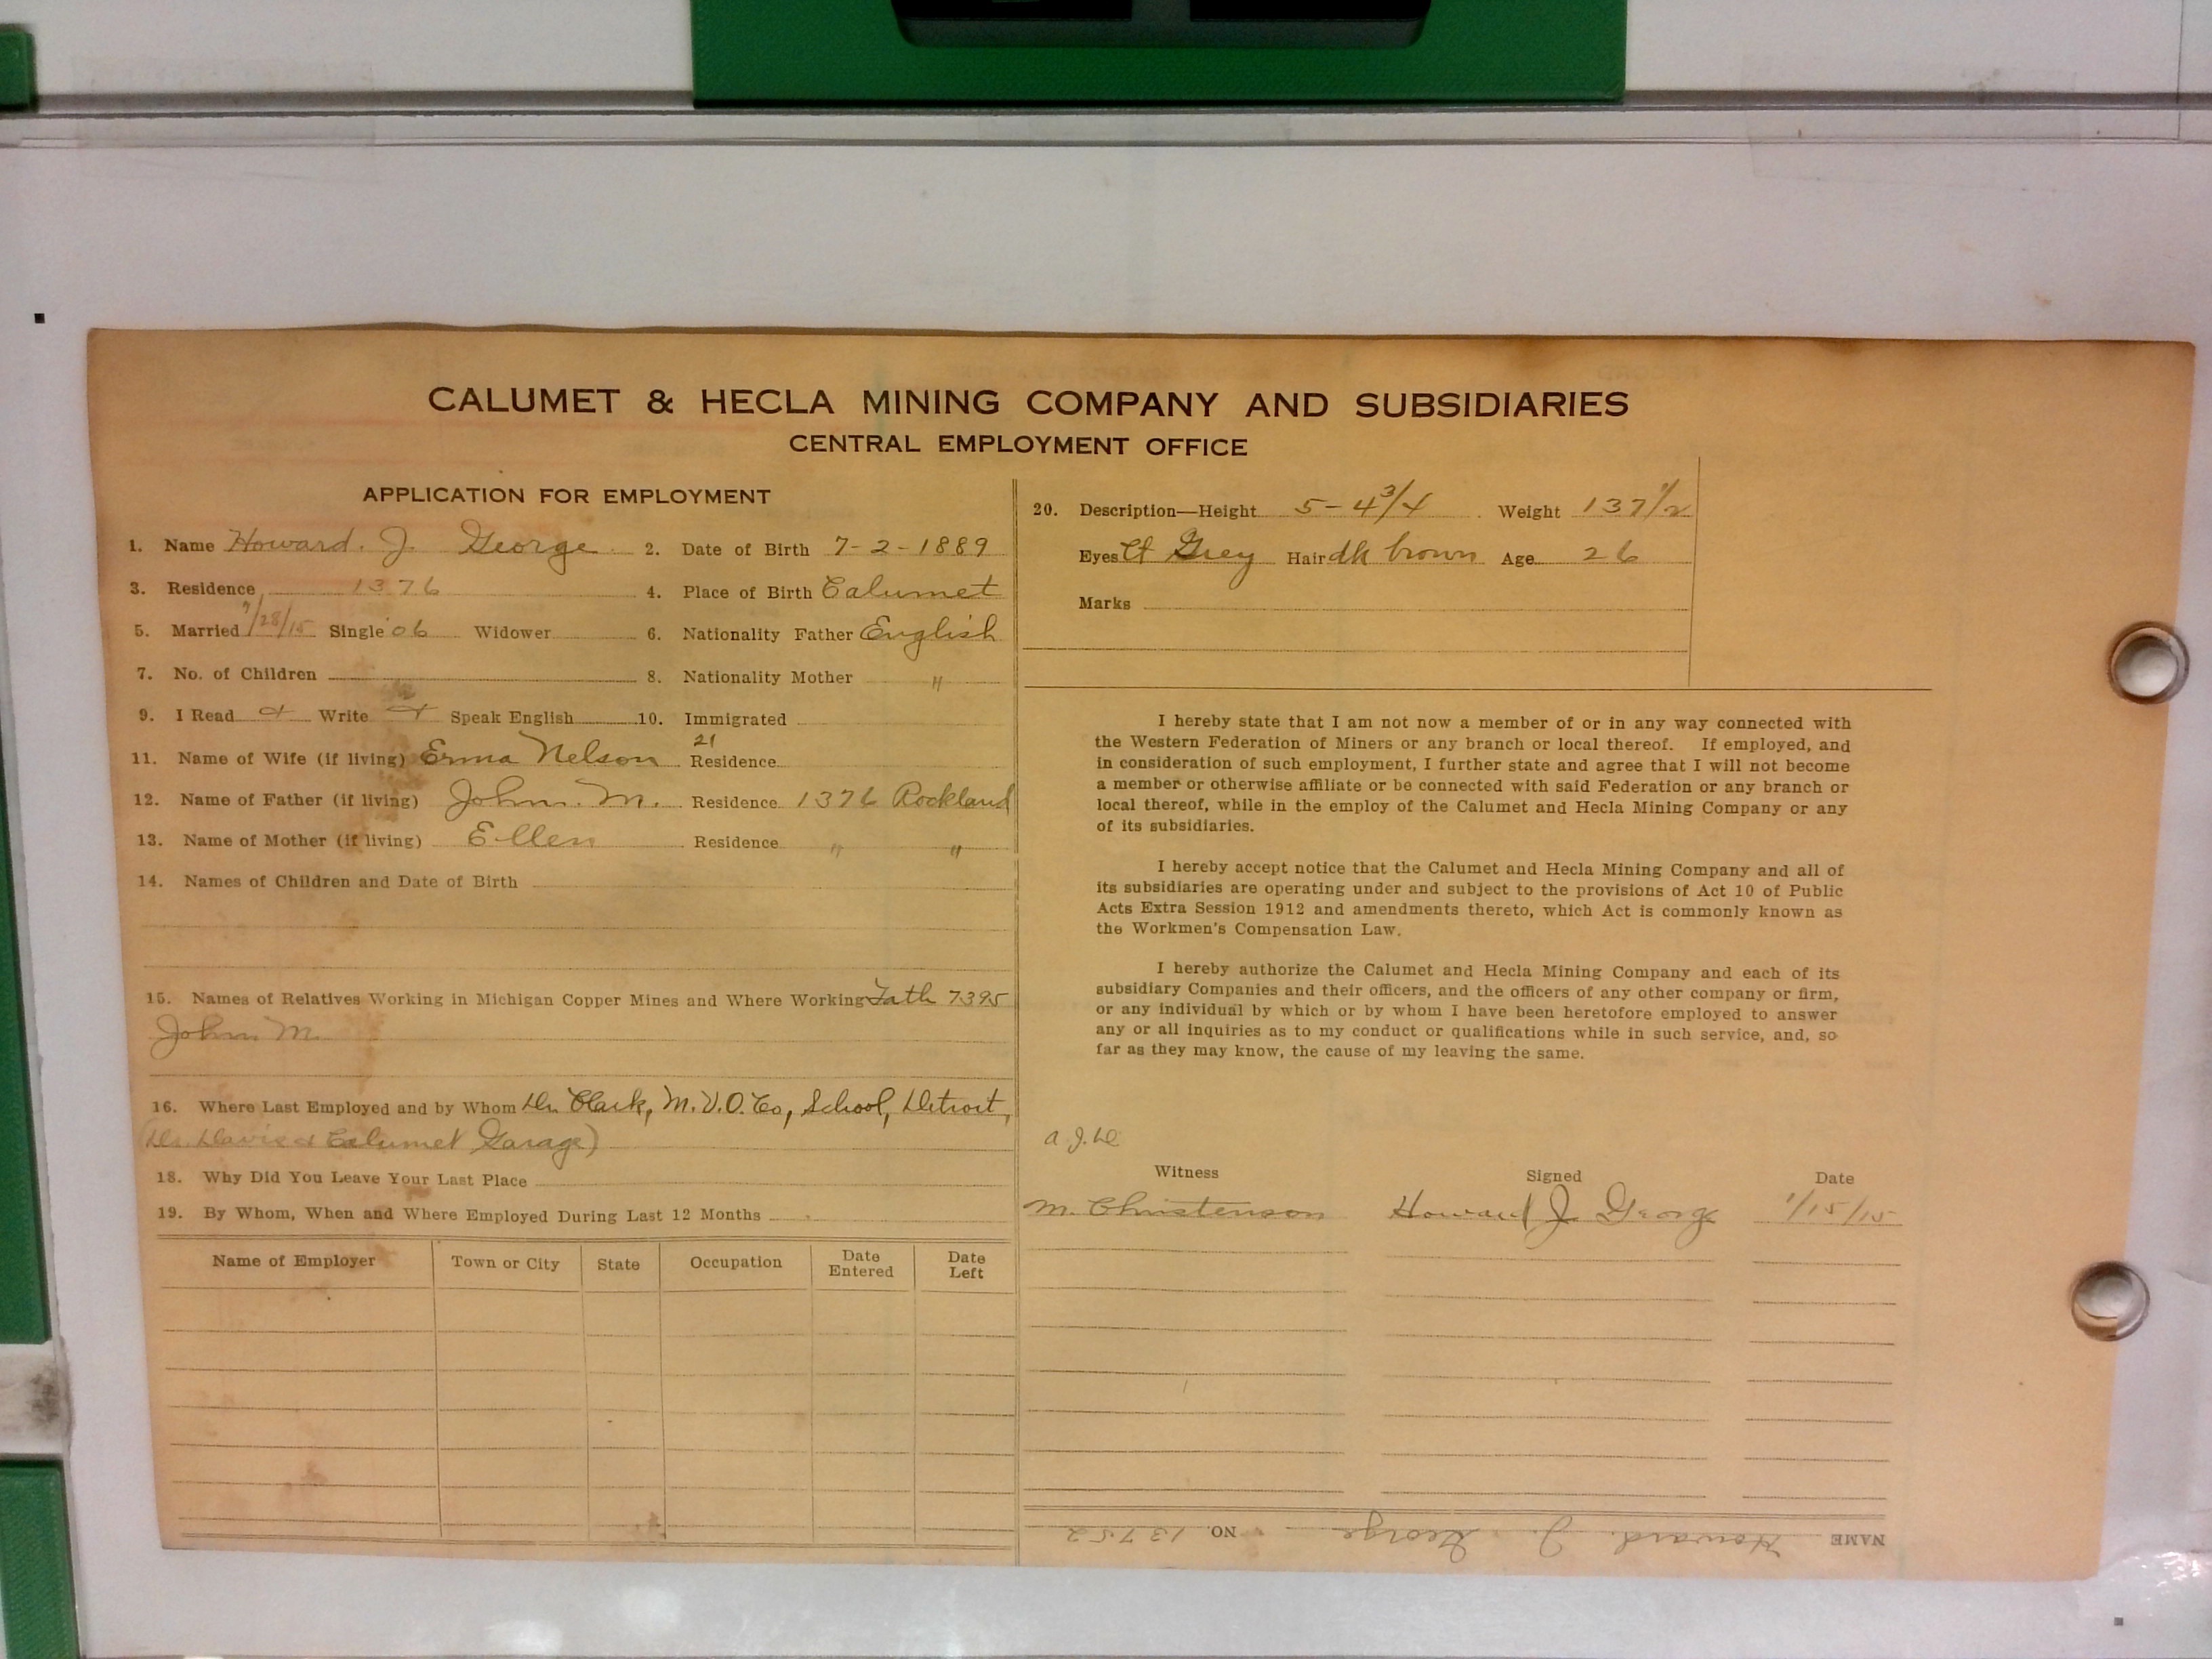 CALUMET & HECLA MINING COMPANY AND SUBSIDIARIES
CENTRAL EMPLOYMENT OFFICE
APPLICATION FOR EMPLOYMENT
1. Name Howard. J. George 2. Date of Birth 7-2-1889
3. Residence 1376 4. Place of Birth Calumet
5. Married 7/28/15 Single 06 Widower 6. Nationality Father English
7. No. of Children 8. Nationality Mother "
9. I Read Write Speak English 10. Immigrated
11. Name of Wife (if living) Erma Nelson 21 Residence
12. Name of Father (if living) John. M. Residence 1376 Rockland
13. Name of Mother (if living) Ellen Residence " "
14. Names of Children and Date of Birth
15. Names of Relatives Working in Michigan Copper Mines and Where Working Fath 7395
John M.
16. Where Last Employed and by Whom Dr. Clark, M.V.O.Co, School, Detroit,
(Dr. Davis & Calumet Garage)
18. Why Did You Leave Your Last Place
19. By Whom, When and Where Employed During Last 12 Months
Name of Employer Town or City State Occupation Date Entered Date Left
20. Description—Height 5-4 3/4 Weight 137 1/2
Eyes Lt Grey Hair dk brown Age 26
Marks
I hereby state that I am not now a member of or in any way connected with
the Western Federation of Miners or any branch or local thereof. If employed, and
in consideration of such employment, I further state and agree that I will not become
a member or otherwise affiliate or be connected with said Federation or any branch or
local thereof, while in the employ of the Calumet and Hecla Mining Company or any
of its subsidiaries.
I hereby accept notice that the Calumet and Hecla Mining Company and all of
its subsidiaries are operating under and subject to the provisions of Act 10 of Public
Acts Extra Session 1912 and amendments thereto, which Act is commonly known as
the Workmen's Compensation Law.
I hereby authorize the Calumet and Hecla Mining Company and each of its
subsidiary Companies and their officers, and the officers of any other company or firm,
or any individual by which or by whom I have been heretofore employed to answer
any or all inquiries as to my conduct or qualifications while in such service, and, so
far as they may know, the cause of my leaving the same.
Witness Signed Date
M. Christenson Howard J. George 1/15/15
NAME Howard. J. George NO. 13752